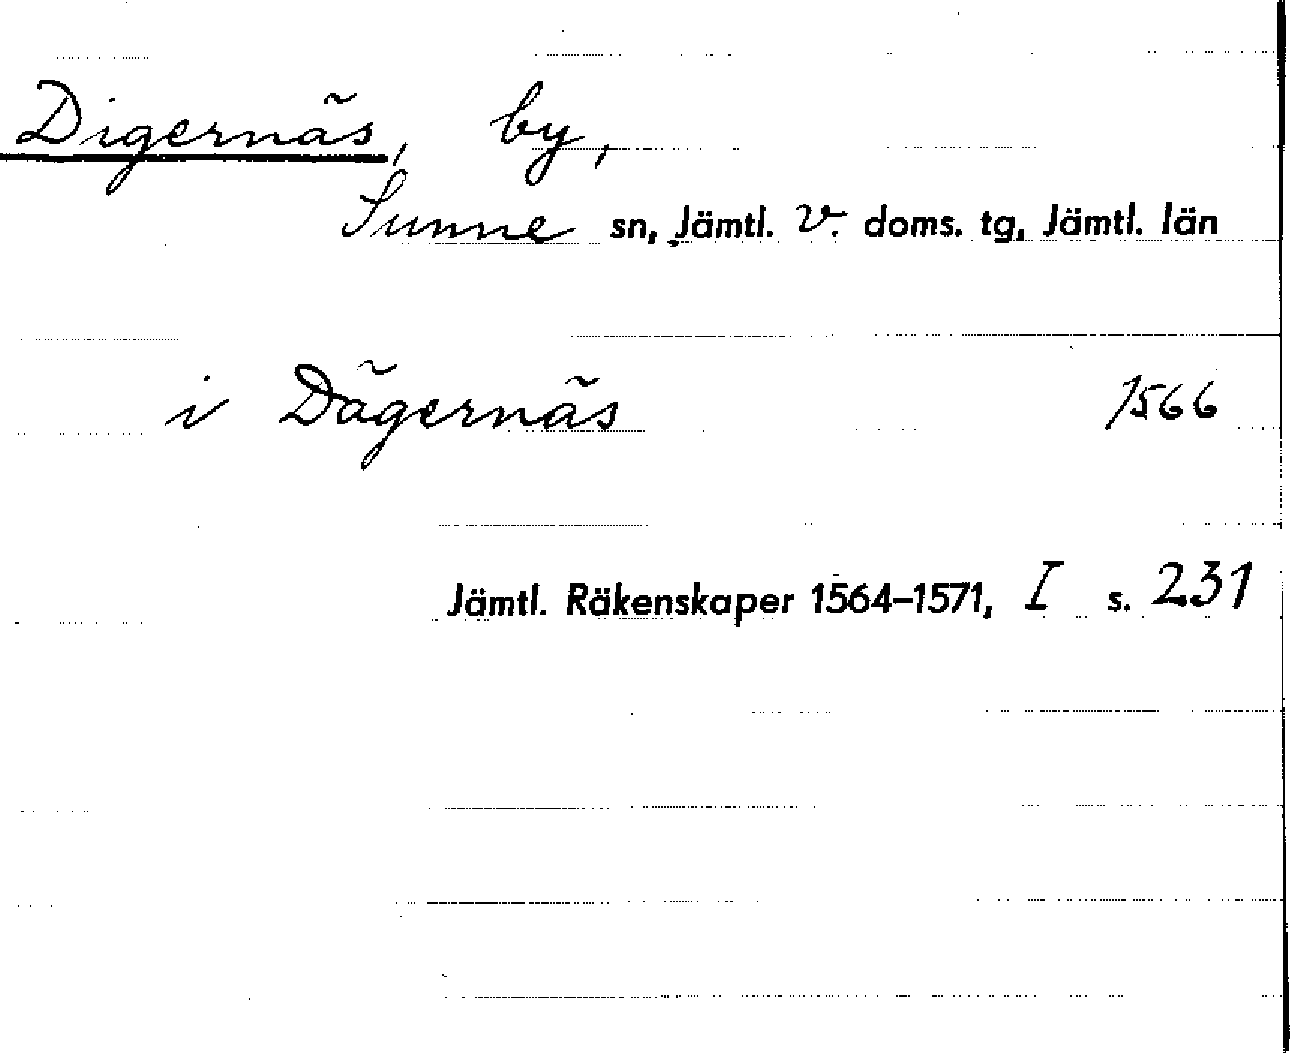 Digernäs, by,
Sunne sn, Jämtl. v. doms. tg, Jämtl. län
i Dägernäs 1566
Jämtl. Räkenskaper 1564–1571, I s. 231